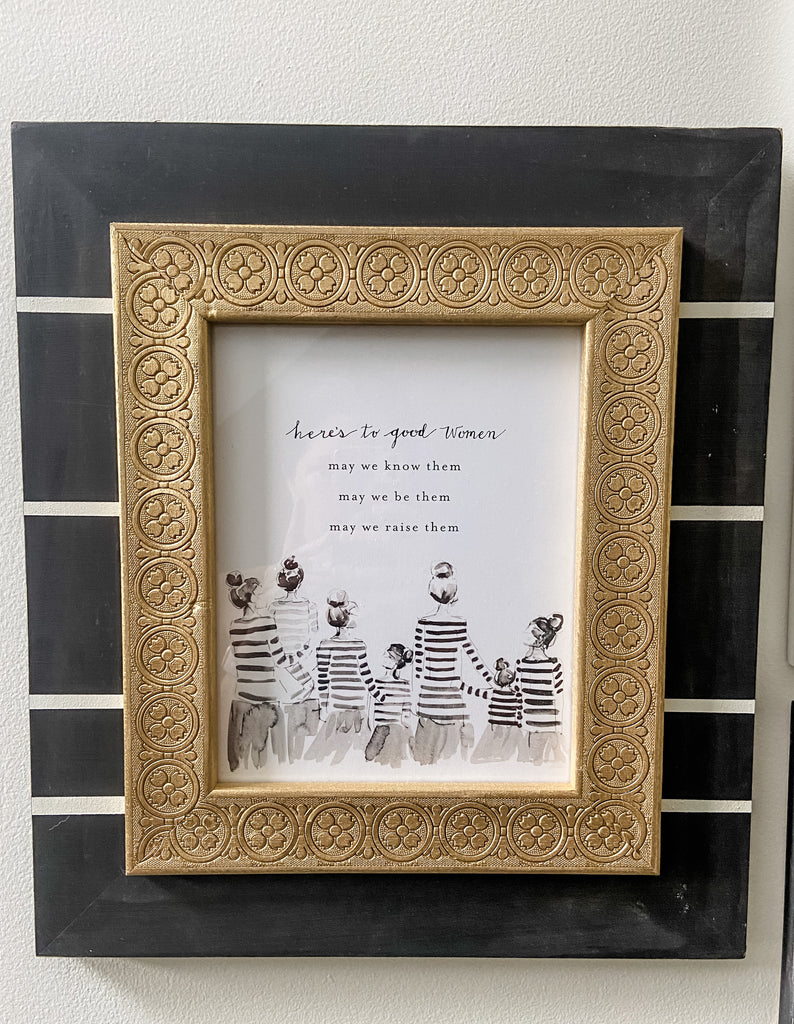 here's to good women
may we know them
may we be them
may we raise them